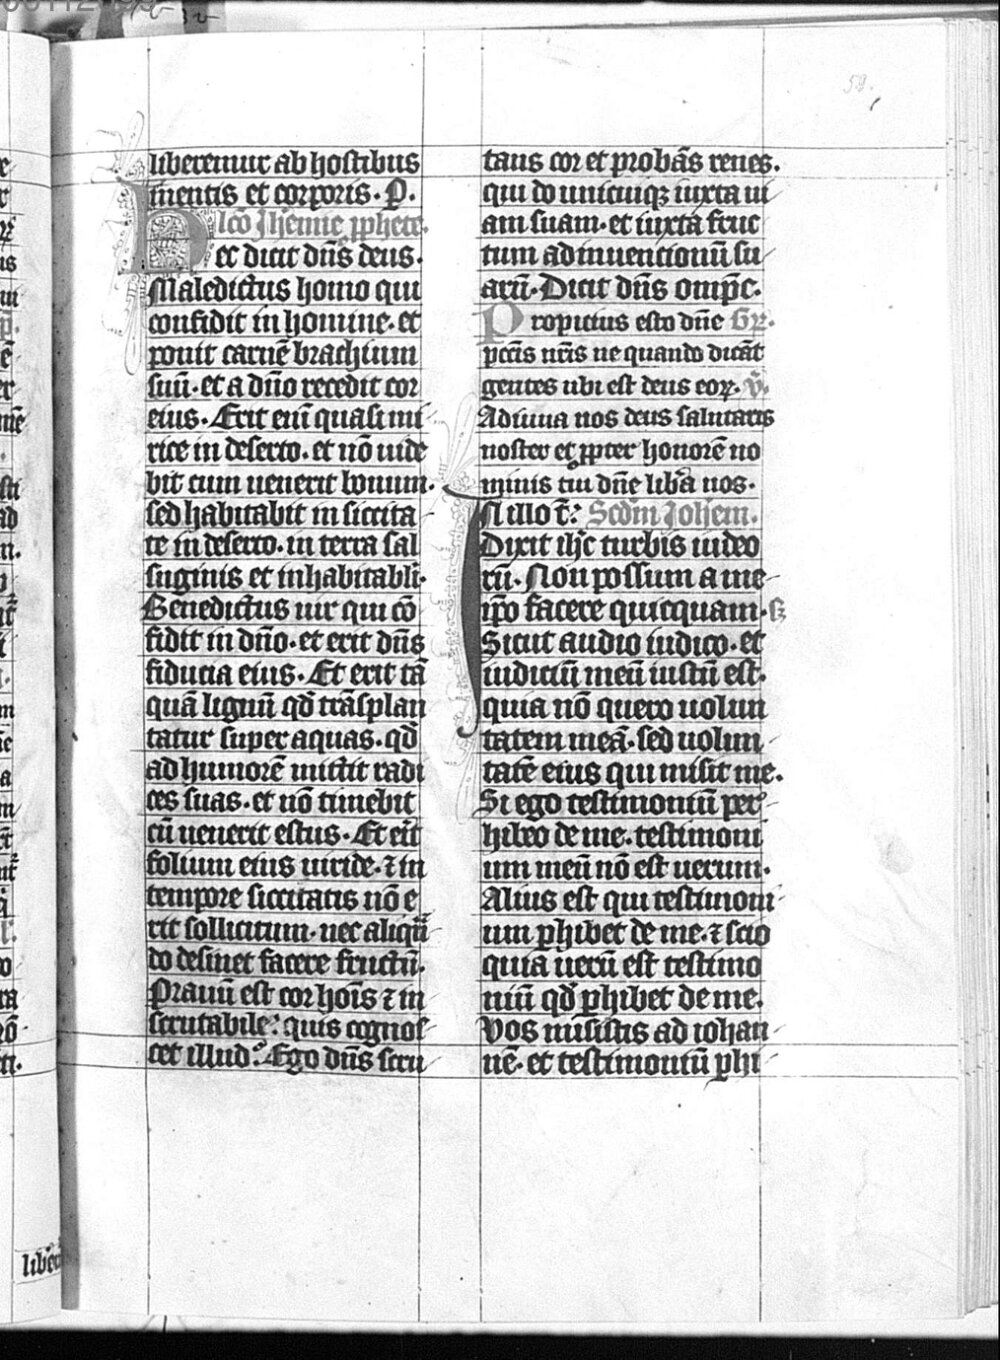 liberemur ab hostibus
mentis et corporis. P.
lcō Jhemie pphete.
Hec dicit dn̄s deus.
Maledictus homo qui
confidit in homine. et
ponit carnē brachium
suū. et a dn̄o recedit cor
eius. Erit eni̅ quasi mi
rice in deserto. et nō uide
bit cum uenerit bonum.
sed habitabit in siccita
te in deserto. in terra sal
suginis et inhabitabli.
Benedictus uir qui cō
fidit in dn̄o. et erit dn̄s
fiducia eius. Et erit tā
quā lignū qd̄ trāsplan
tatur super aquas. qd̄
ad humorē mittit radi
ces suas. et nō timebit
cū uenerit estus. Et erit
folium eius uiride. ⁊ in
tempore siccitatis nō e
rit sollicitum. nec aliqn̄
do desinet facere fructū.
Prauū est cor hoīs ⁊ in
scrutabile: quis cognos
cet illud? Ego dn̄s scru
tans cor et probās renes.
qui do unicuiqꝫ iuxta ui
am suam. et iuxta fruc
tum adinuencionū su
arū. Dicit dn̄s omp̄c.
Propicius esto dn̄e Gꝝ.
pctīs nr̄is ne quando dicāt
gentes ubi est deus eoꝝ. v̄.
Adiuua nos deus salutaris
noster et ꝓpter honorē no
minis tui dn̄e libā nos.
In illo t̄: Scd̄m Johem.
Dixit ih̄c turbis iudeo
rū. Non possum a me
ip̄o facere quicquam. sꝫ
Sicut audio iudico. et
iudiciū meū iustū est.
quia nō quero uolun
tatem meā. sed uolun
tatē eius qui misit me.
Si ego testimoniū per
hibeo de me. testimoni
um meū nō est uerum.
Alius est qui testimoni
um ꝑhibet de me. ⁊ scio
quia uerū est testimo
niū qd̄ ꝑhibet de me.
Vos misistis ad iohan
nē. et testimoniū ꝑhi